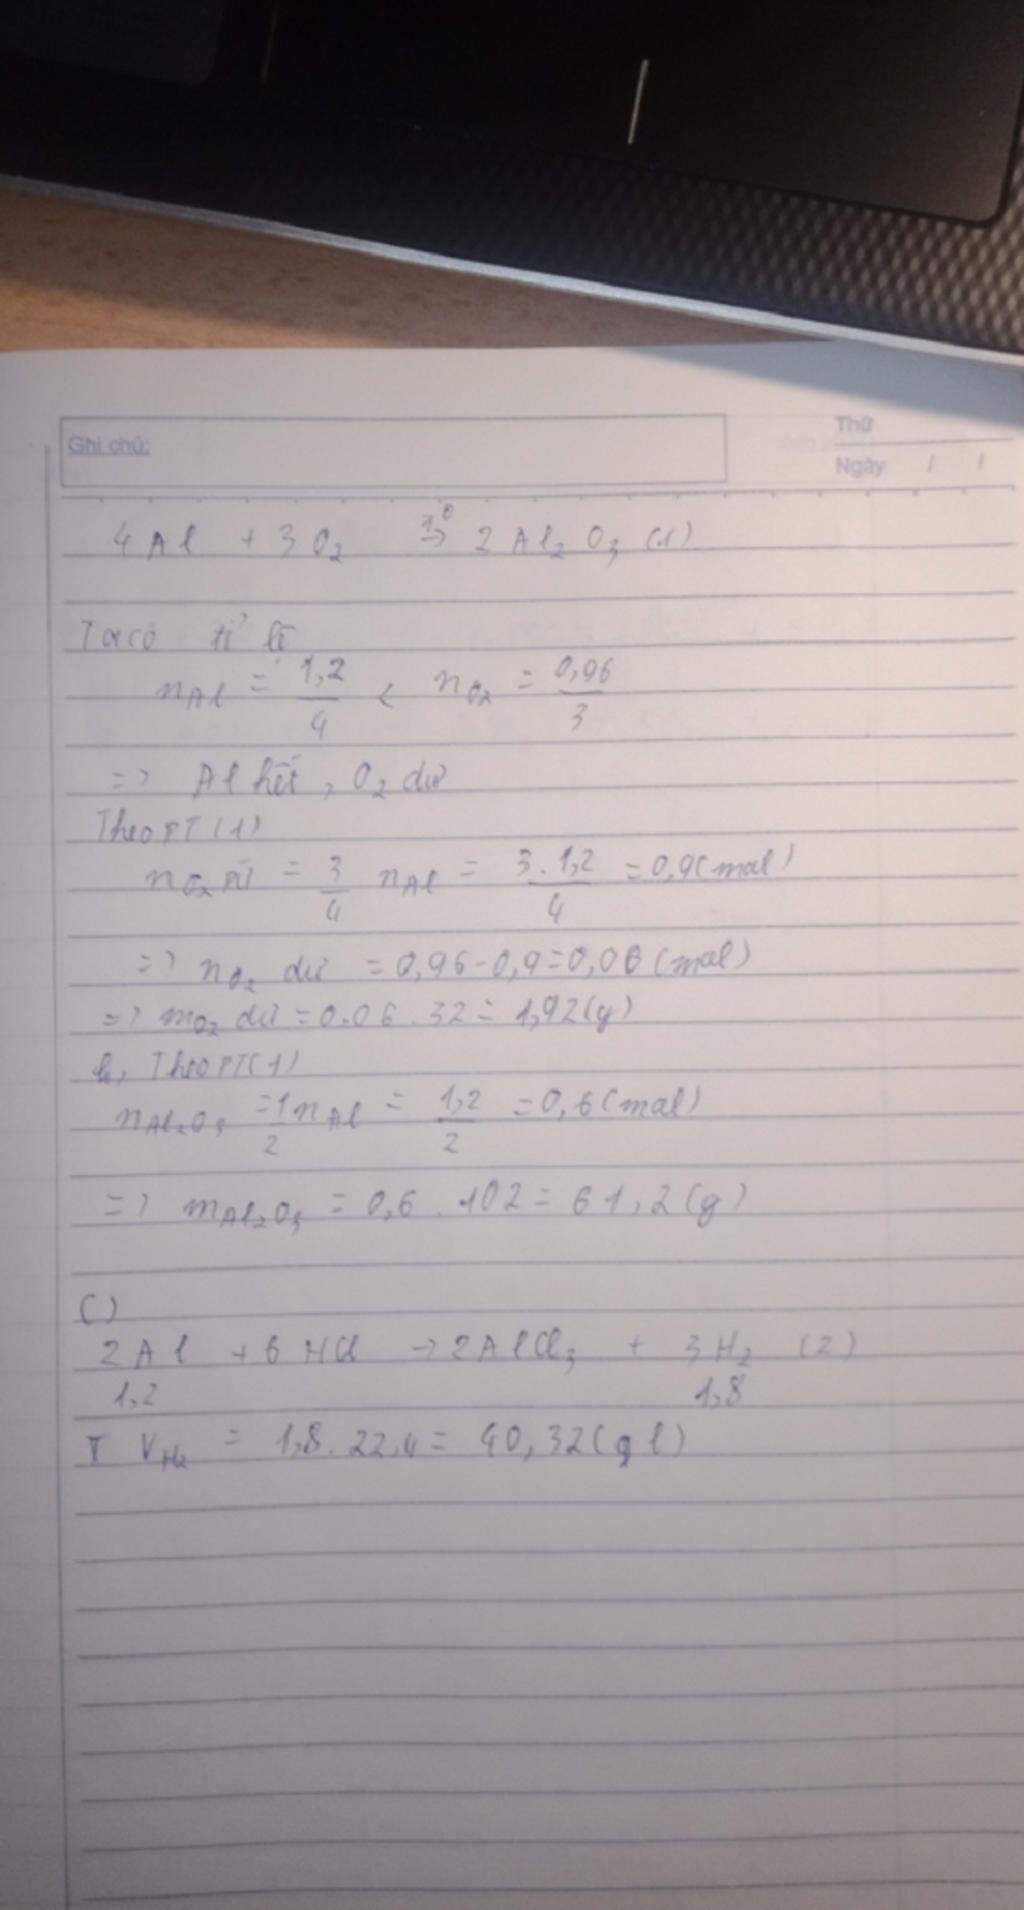 Ghi chú:
Thứ
Ngày / /
4Al + 3O₂ →t⁰ 2Al₂O₃ (1)
Ta có tỉ lệ
nAl = 1,2/4 < nO₂ = 0,96/3
=> Al hết, O₂ dư
Theo PT(1)
nO₂ PƯ = 3/4 nAl = 3.1,2/4 = 0,9(mol)
=> nO₂ dư = 0,96-0,9=0,06(mol)
=> mO₂ dư = 0.06.32 = 1,92(g)
b, Theo PT(1)
nAl₂O₃ = 1/2 nAl = 1,2/2 = 0,6(mol)
=> mAl₂O₃ = 0,6.102 = 61,2(g)
C)
2Al + 6HCl → 2AlCl₃ + 3H₂ (2)
1,2 1,8
VH₂ = 1,8.22,4 = 40,32(l)